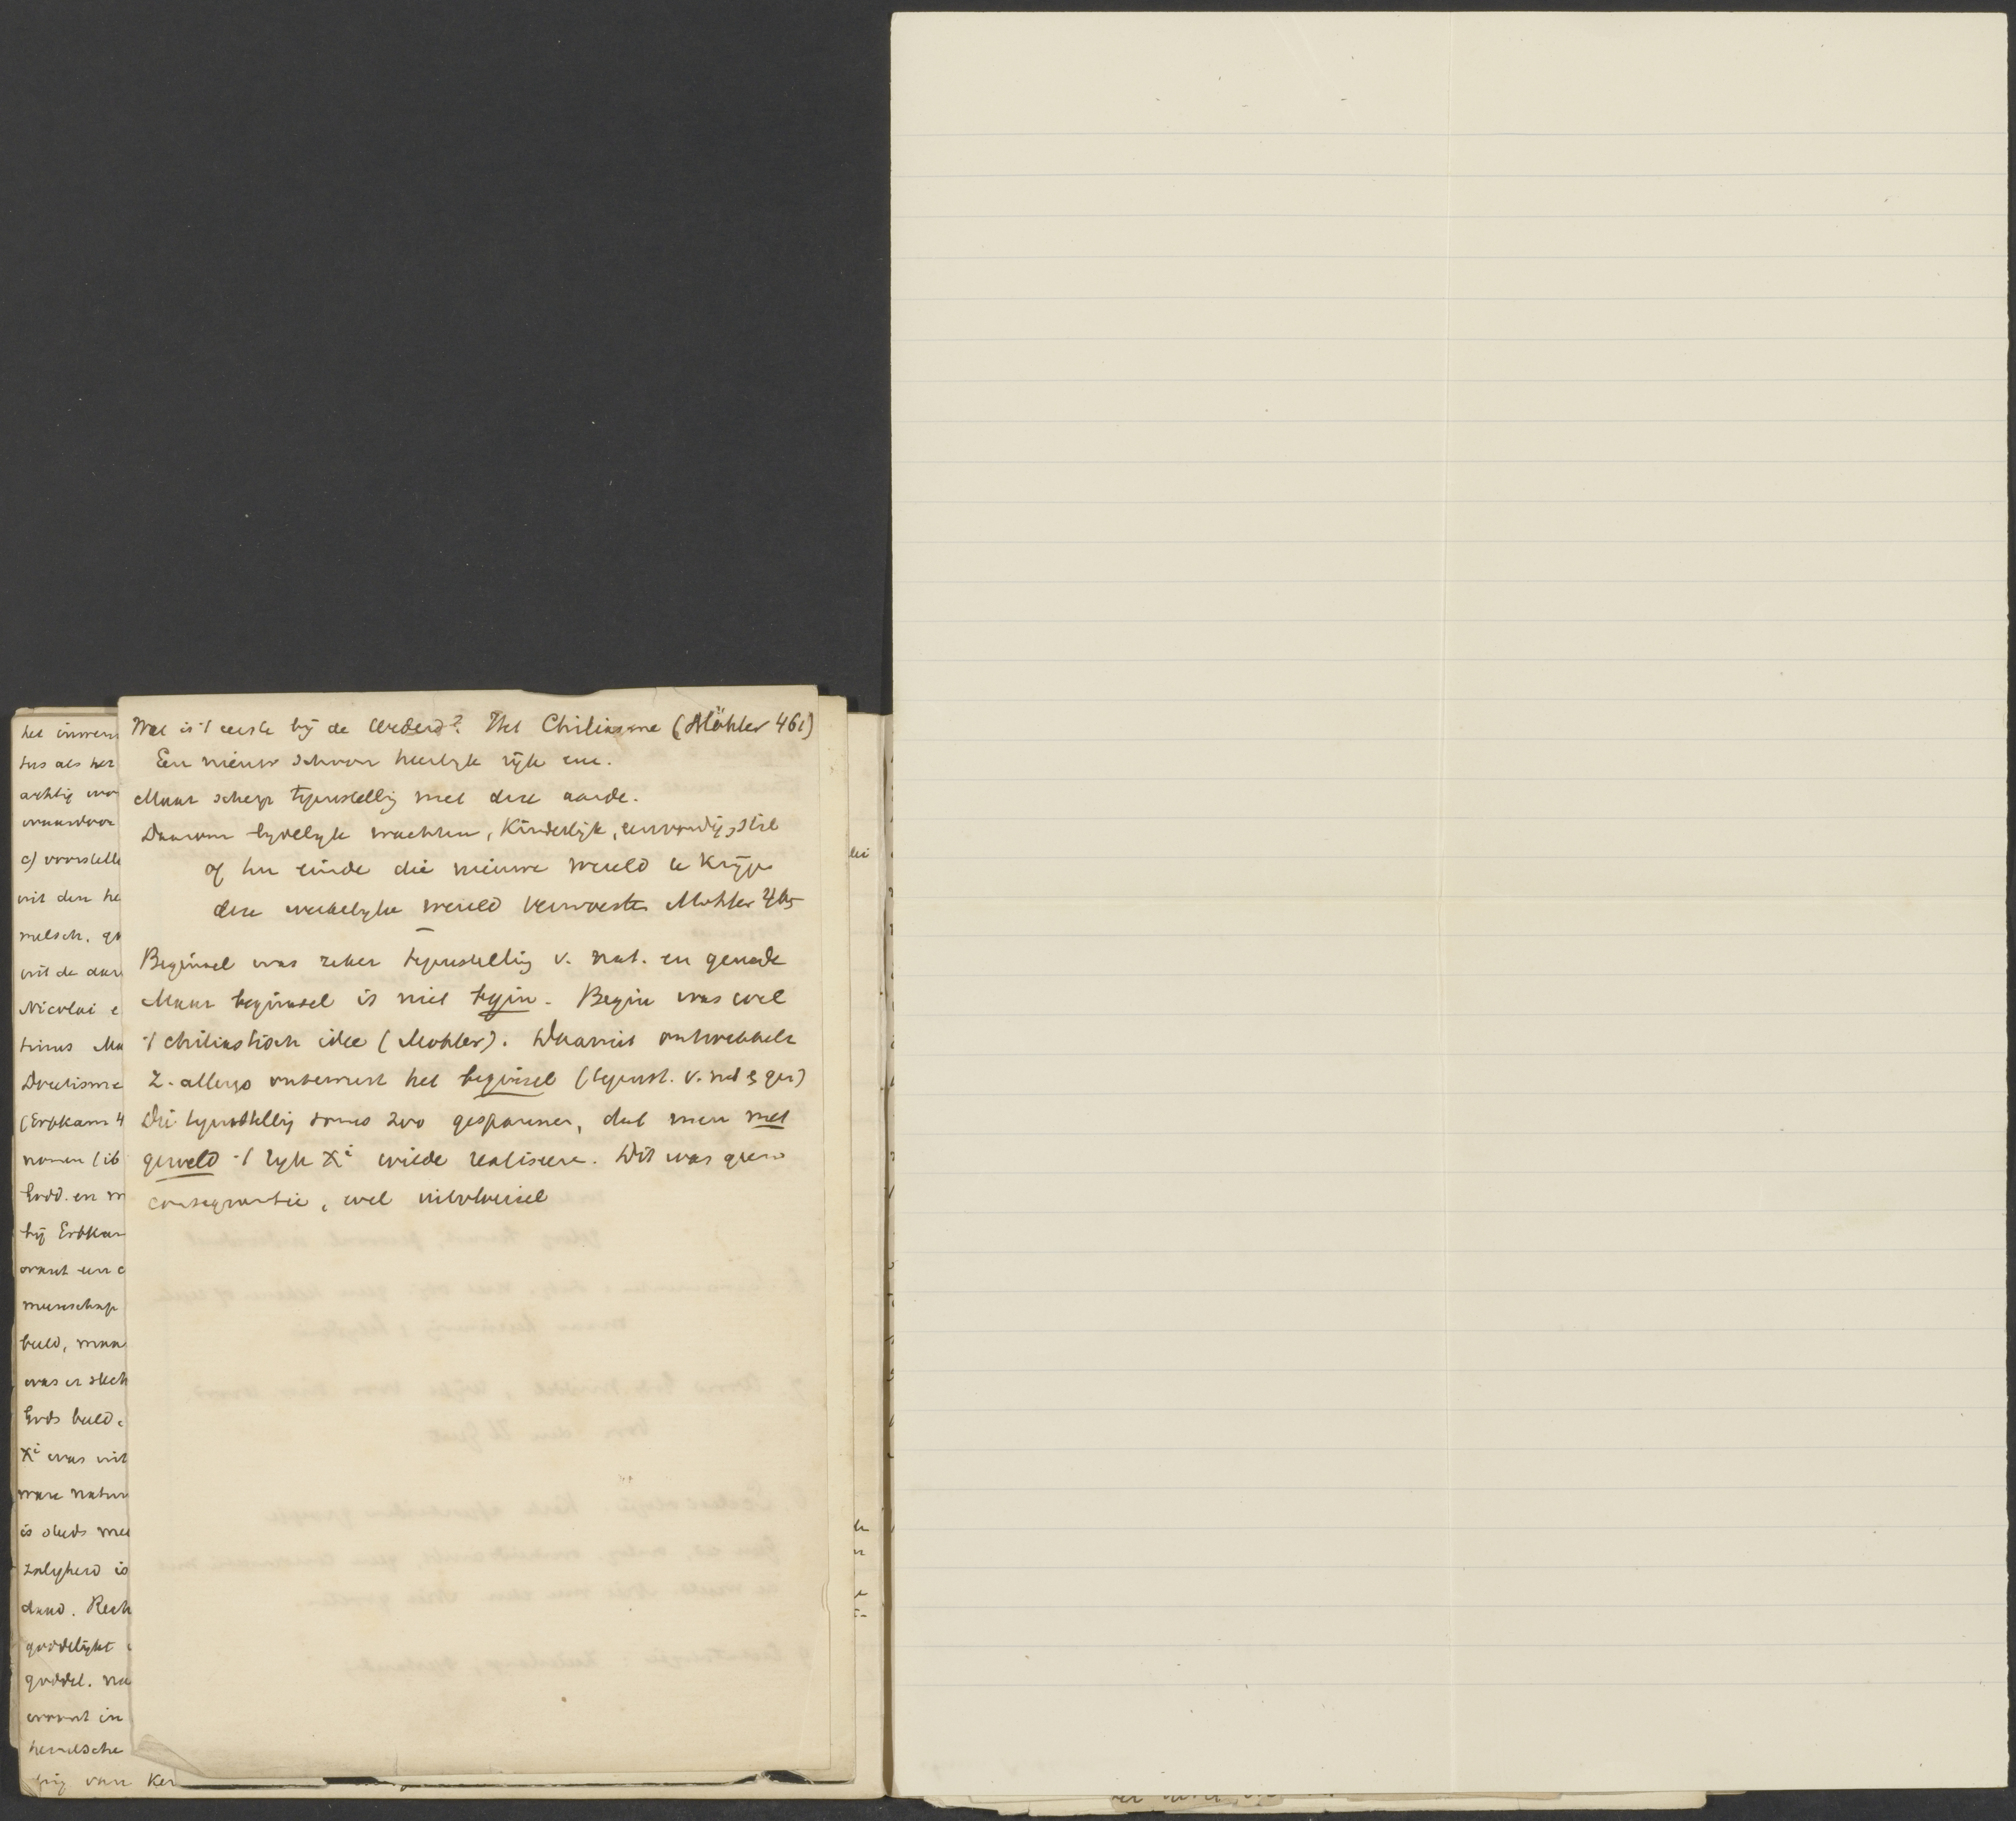 Wat is 't eerste bij de Wederd? Het Chiliasme (Möhler 461)
Een nieuw schoon heerlyk rijk enz.
Maar scherpe tegenstelling met deze aarde.
Daarom lydelyk wachten, Kinderlijk, eenvoudig, stil
of ten einde die nieuwe wereld te krijgen
deze werkelyke wereld verwoesten Mohler 465
Beginsel was zeker tegenstelling v. nat. en genade
Maar beginsel is niet begin. Begin was wel
't chiliastisch idee (Mohler). Daaruit ontwikkelt
z. allengs onbewust het beginsel (tegenst. v. nat & gen)
Die tegenstelling soms zoo gespannen, dat men met
geweld 't ryk Xi wilde realiseren. Dit was geen
consequentie, wel
het inwen
tus als her
achtig
waardoor
c) voorstelle
uit den he
melsch. ge
uit de
Nicolai e
tinus Ma
Docetisme
(Erbkam 4
nomen (ib
Godd. en m
bij Erbkam
want een
menschap
beeld, maa
was er slech
Gods beeld.
Xi was uit
ware natuur
is steeds mee
zalyheid is
daad. Rech
goddelijkt
goddel. na
wordt in
hemelsche
van Ker